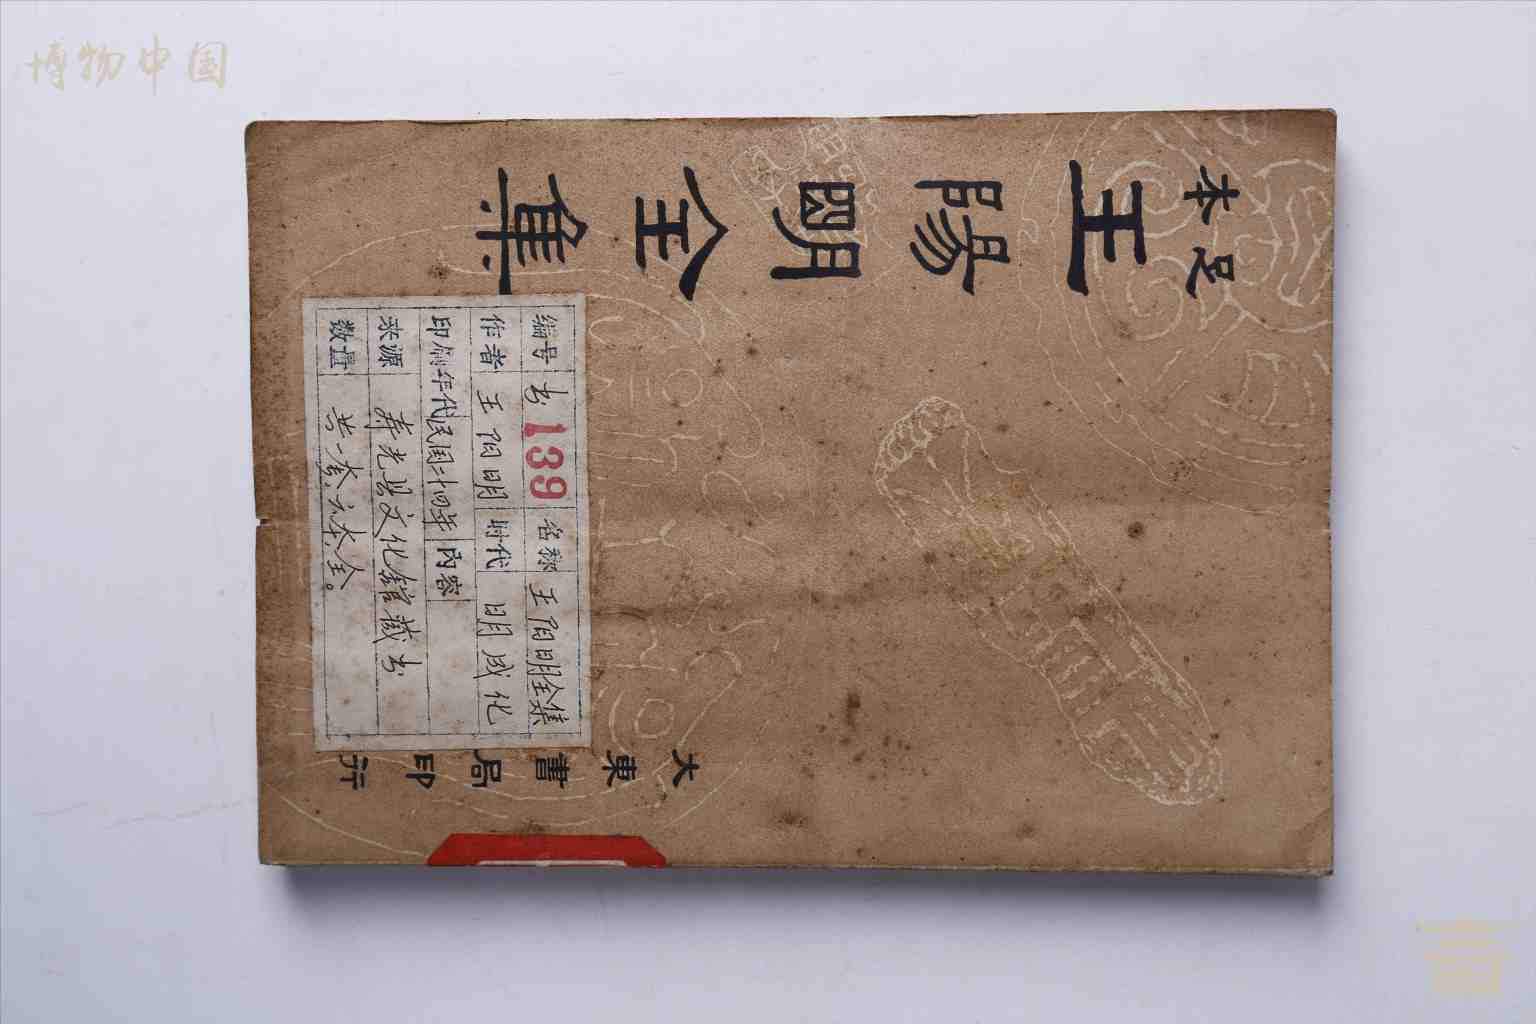 博物中国
足本
王陽朙全集
编号 书139 名称 王阳明全集
作者 王阳明 时代 明成化
印刷年代 民国二十四年 内容
来源 寿光县文化馆藏书
数量 共一套六本全。
大東書局印行